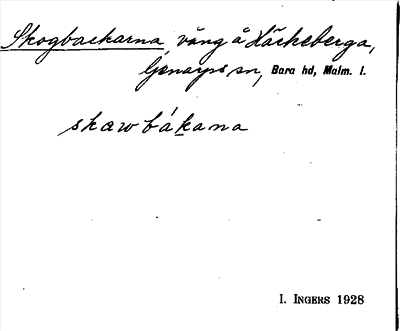 Skogbackarna, vång å Häckeberga,
Genarps sn, Bara hd, Malm. l.
skæw bákana
I. INGERS 1928